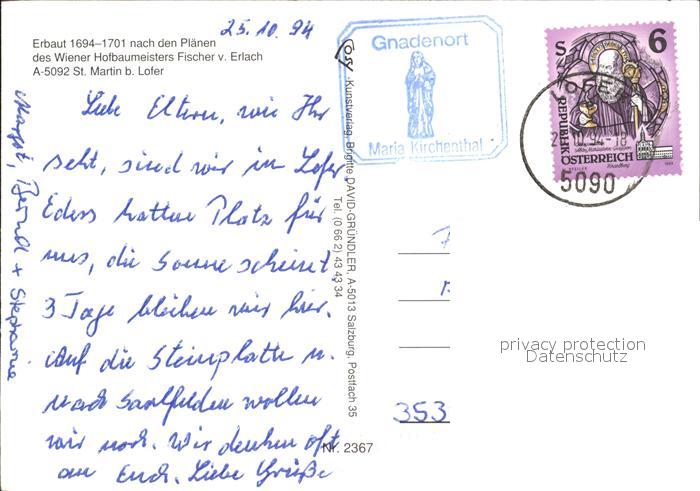 25.10.94
Erbaut 1694–1701 nach den Plänen
des Wiener Hofbaumeisters Fischer v. Erlach
A-5092 St. Martin b. Lofer
Liebe Eltern, wie Ihr
seht, sind wir in Lofer
Eders hatten Platz für
uns, die Sonne scheint.
3 Tage bleiben wir hier.
Auf die Steinplatte u.
nach Saalfelden wollen
wir noch. Wir denken oft
an Euch. Liebe Grüße
Bernd + Stephanie
Cosy Kunstverlag, Brigitte DAVID-GRÜNDLER, A-5013 Salzburg, Postfach 35
Tel. (0 66 2) 43 43 34
Nr. 2367
Gnadenort
Maria Kirchenthal
S 6
REPUBLIK
ÖSTERREICH
LOFER
94-18
5090
353
privacy protection
Datenschutz